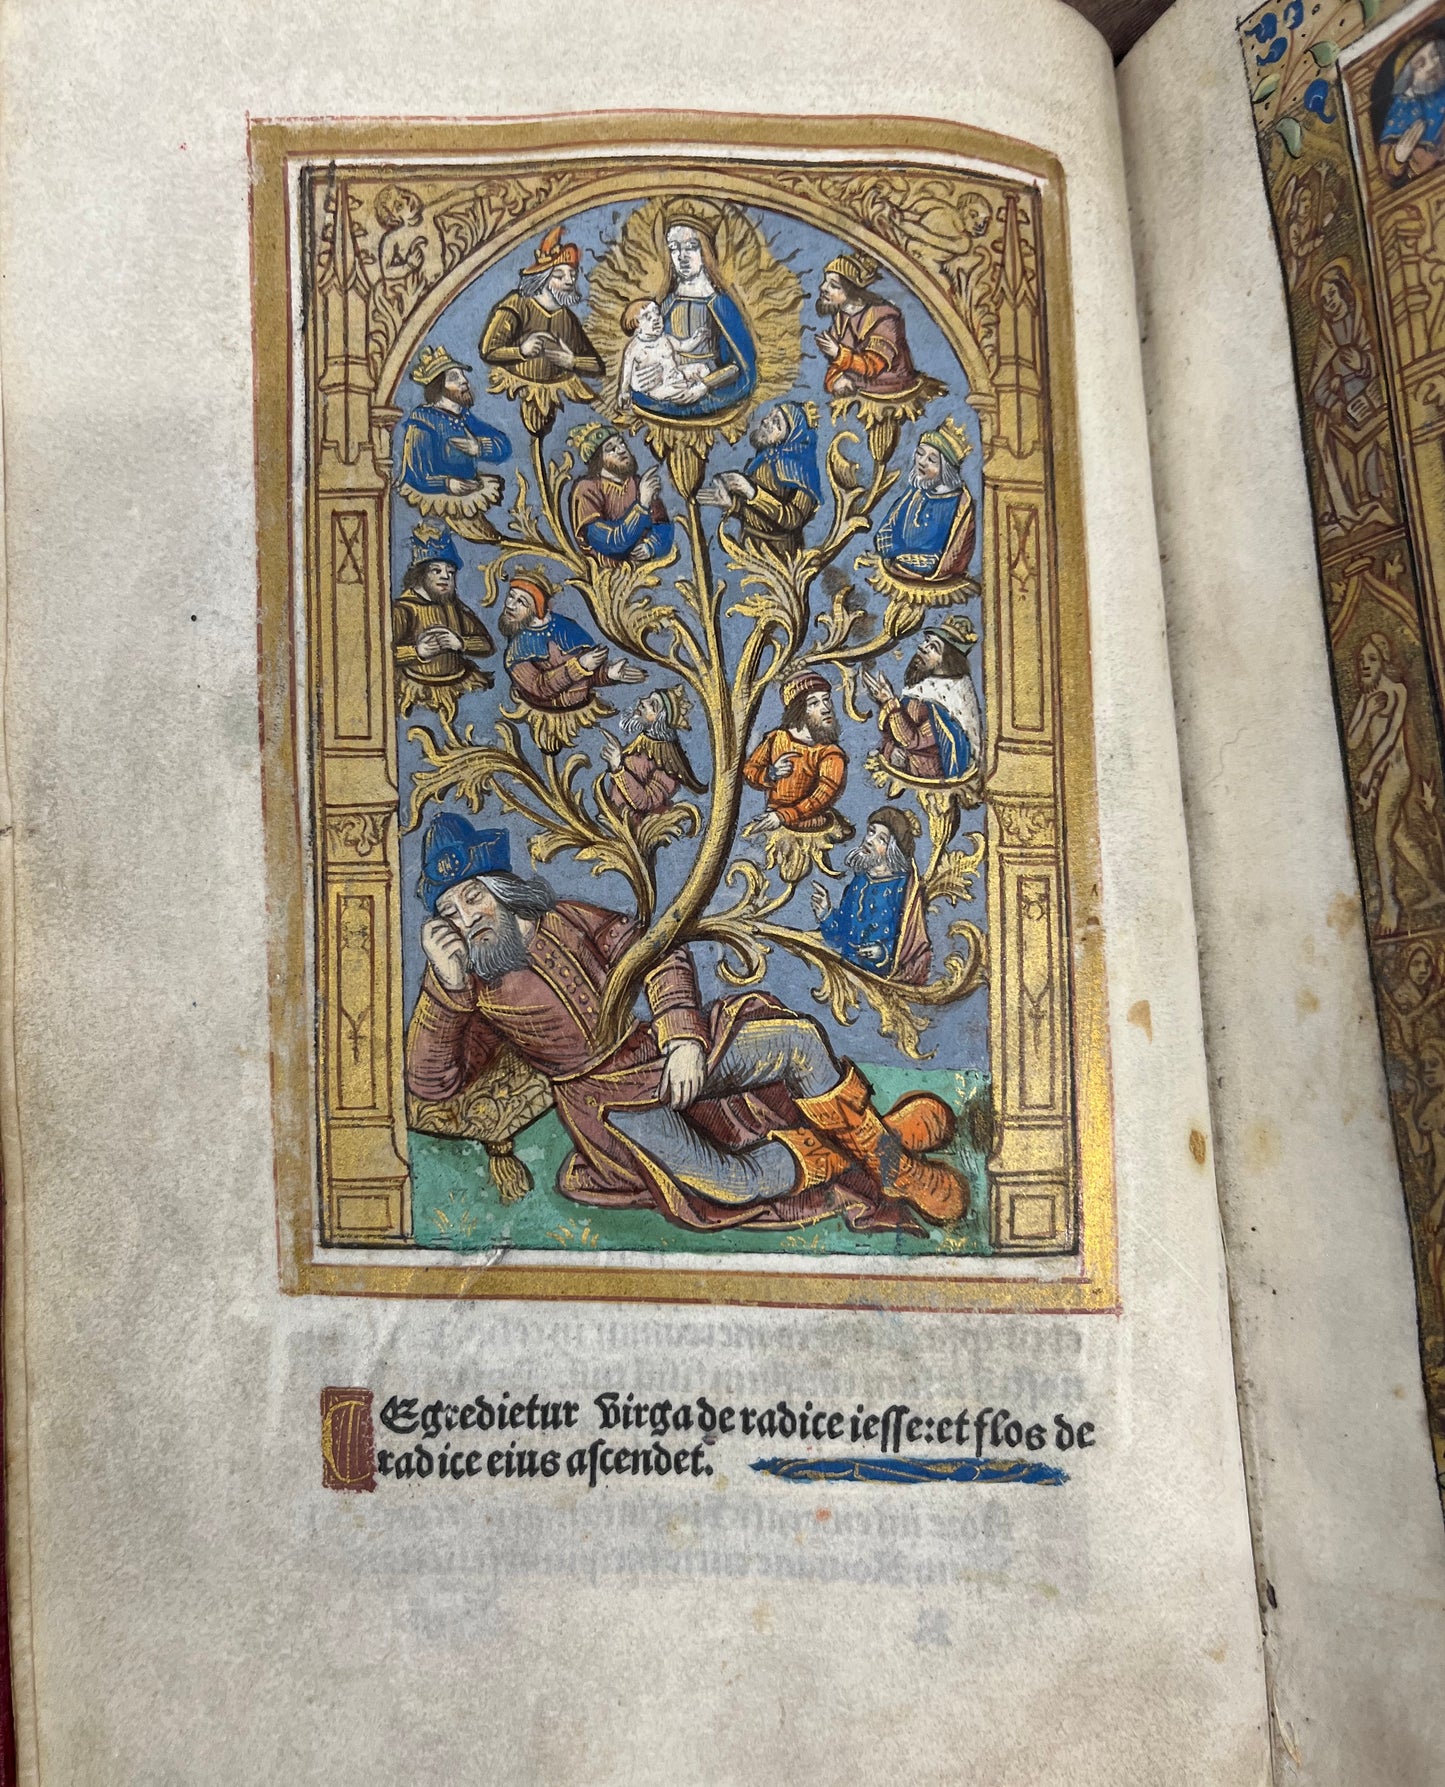 Egredietur Virga de radice iesse: et flos de
radice eius ascendet.